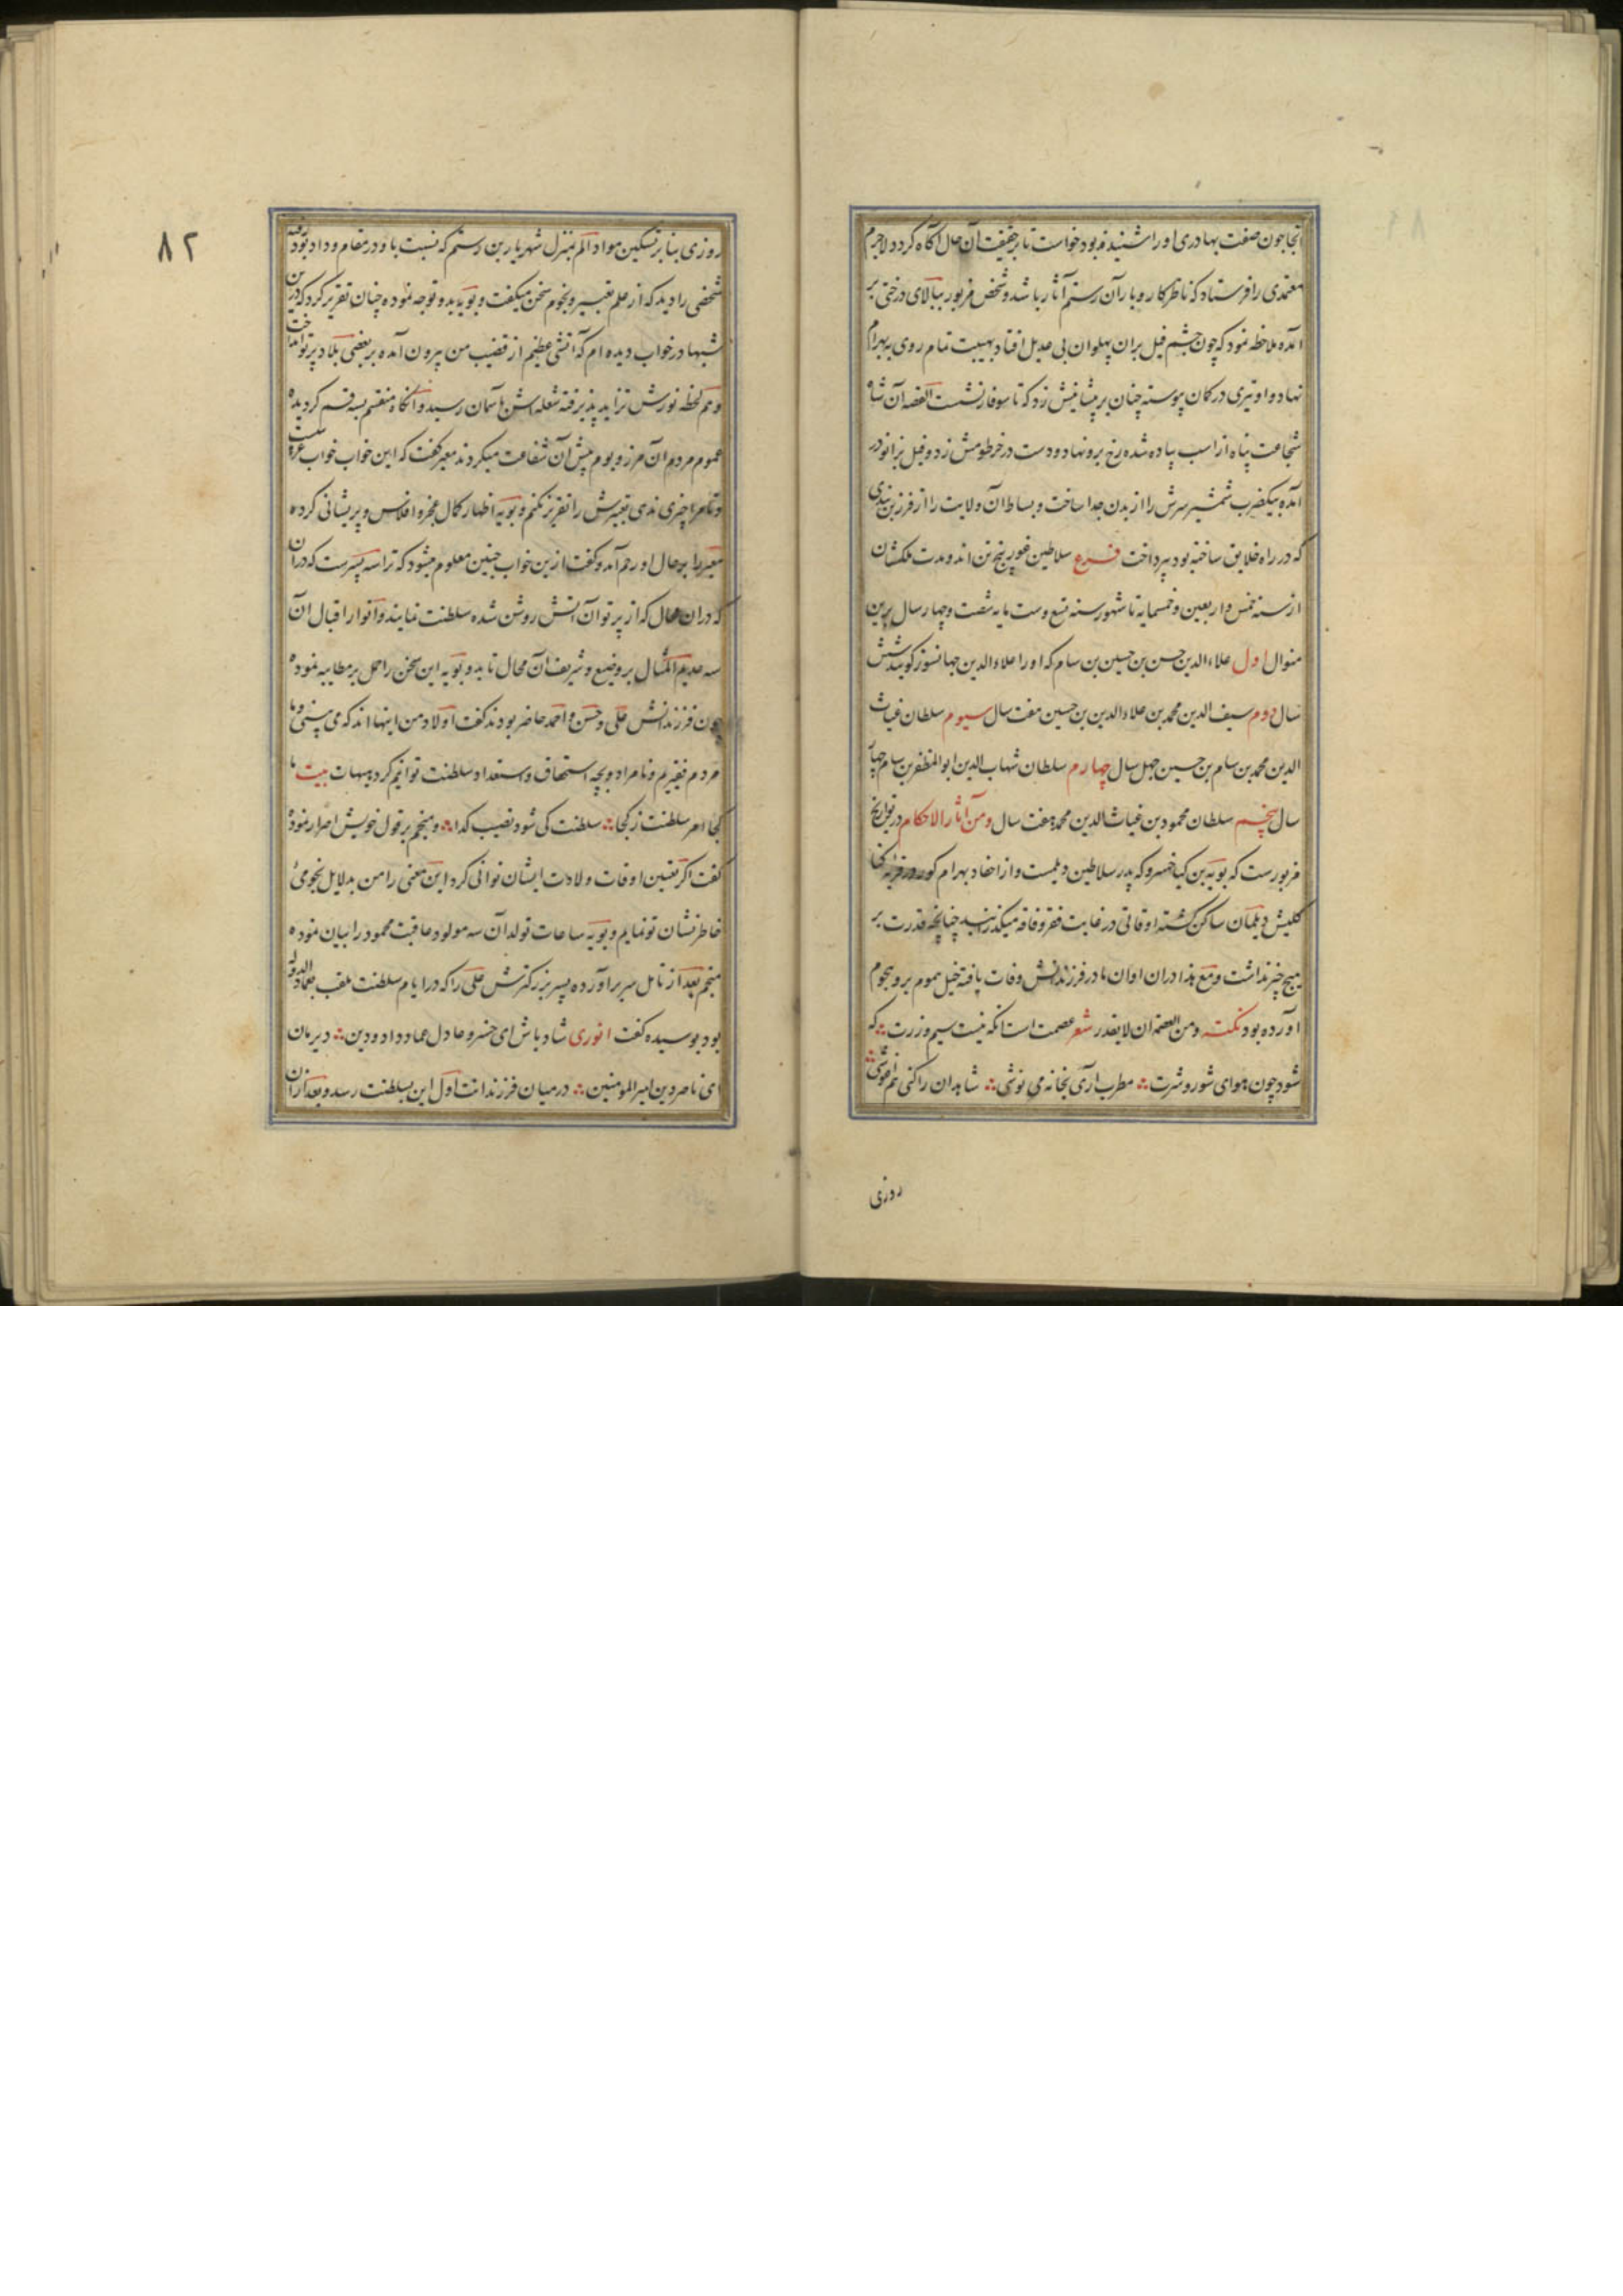 آنجا چون صفت بهادری او را شنیده بود خواست تا بر حقیقت آن حال آگاه گردد لاجرم
معتمدی را فرستاد که ناظر کار و بار آن رستم آثار باشد و شخص مزبور ببالای درختی بر
آمده ملاحظه نمود که چون چشم فیل بران پهلوان بی عدیل افتاد بهیبت تمام روی به بهرام
نهاد و او تیری در کمان پیوسته چنان بر پیشانیش زد که تا سوفار نشست القصه آن
شجاعت پناه از اسب پیاده شده رخ برو نهاد و دست در خرطومش زد و فیل بزانو در
آمده بیکضرب شمشیر سرش را از بدن جدا ساخت و بساط آن ولایت را از فرزین بندی
که در راه خلایق ساخته بود بپرداخت فرع سلاطین غور پنج تن اند و مدت ملکشان
از سنه خمس و اربعین و خمسمایه تا شهور سنه تسع و ست مایه شصت و چهار سال برین
منوال اول علاء الدین حسن بن حسین بن سام که او را علاء الدین جهانسوز گویند شش
سال دوم سیف الدین محمد بن علاء الدین بن حسین هفت سال سیوم سلطان غیاث
الدین محمد بن سام بن حسین چهل سال چهارم سلطان شهاب الدین ابو المظفر بن سام چهار
سال پنجم سلطان محمود بن غیاث الدین محمد هفت سال و من آثار الاحکام در تواریخ
مزبورست که بویه بن کیا خسرو که پدر سلاطین دیلمست و از احفاد بهرام کور در قریه
کلیش دیلمان ساکن کشته اوقاتی در غایت فقر و فاقه میگذرانید چنانچه قدرت بر
هیچ چیز نداشت و مع هذا دران اوان مادر فرزندانش وفات یافته خیل هموم برو هجوم
آورده بود نکته و من العصم ان لا یقدر شعر عصمت است آنکه نیست سیم و زرت که
شود چون هوای شور و شرت مطرب آری بخانه می نوشی شاهدان را کنی
روزی
۸۲
روزی بنابر تسکین مواد الم بمنزل شهریار بن رستم که نسبت باو در مقام وداد بود رفته
شخصی را دید که از علم تعبیر و نجوم سخن میگفت و بویه بدو توجه نموده چنان تقریر کرد که درین
شبها در خواب دیده ام که آتشی عظیم از قضیب من بیرون آمده بر بعضی بلاد پرتو انداخت
و هر لحظه نورش تزاید پذیرفته شعله اش بآسمان رسید و آنگاه منقسم بسه قسم گردیده
عموم مردم آن مرز و بوم پیش آن شفاعت میکردند معبر گفت که این خواب خواب غریبست
و تا مرا چیزی ندی تعبیرش را تقریر نکنم و بویه اظهار کمال عجز و افلاس و پریشانی کرده
معبر را بر حال او رحم آمد و گفت ازین خواب چنین معلوم میشود که ترا سه پسرست که دران
که دران محال که از پرتو آن آتش روشن شده سلطنت نمایند و انوار اقبال آن
سه عدیم المثال بر وضیع و شریف آن محال تابد و بویه این سخن را حمل بر مطایبه نموده
چون فرزندانش علی و حسن و احمد حاضر بودند گفت اولاد من اینها اند که می بینی و ما
مردم فقیریم و نامراد و بچه استحقاق و استعداد سلطنت توانیم کرد هیهات بیت ما
کجا امر سلطنت ز کجا سلطنت کی شود نصیب گدا و منجم بر قول خویش اصرار نموده
گفت اگر تعیین اوقات ولادت ایشان توانی کرد این معنی را من بدلایل نجومی
خاطرنشان تو نمایم و بویه ساعات تولد آن سه مولود عاقبت محمود را بیان نموده
منجم بعد از تامل سر برآورده پسر بزرگترش علی را که در ایام سلطنت ملقب بعماد الدوله
بود بوسیده گفت انوری شاد باش ای خسرو عادل عماد داد و دین دیر مان
ای ناصر دین امیر المومنین در میان فرزندانت اول این بسلطنت رسد و بعد ازان